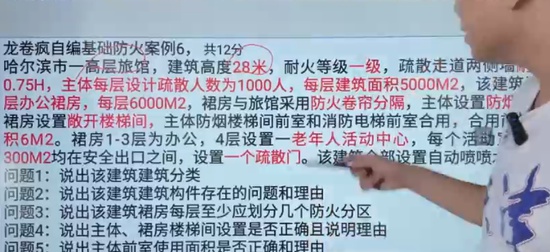 龙卷疯自编基础防火案例6，共12分
哈尔滨市一高层旅馆，建筑高度28米，耐火等级一级，疏散走道两侧墙
0.75H，主体每层设计疏散人数为1000人，每层建筑面积5000M2，该建
层办公裙房，每层6000M2，裙房与旅馆采用防火卷帘分隔，主体设置防烟
裙房设置敞开楼梯间，主体防烟楼梯间前室和消防电梯前室合用，合用
积6M2。裙房1-3层为办公，4层设置一老年人活动中心，每个活动
300M2均在安全出口之间，设置一个疏散门。该建 部设置自动喷
问题1：说出该建筑建筑分类
问题2：说出该建筑建筑构件存在的问题和理由
问题3：说出该建筑裙房每层至少应划分几个防火分区
问题4：说出主体、裙房楼梯间设置是否正确且说明理由
问题5：说出主体前室使用面积是否正确和理由